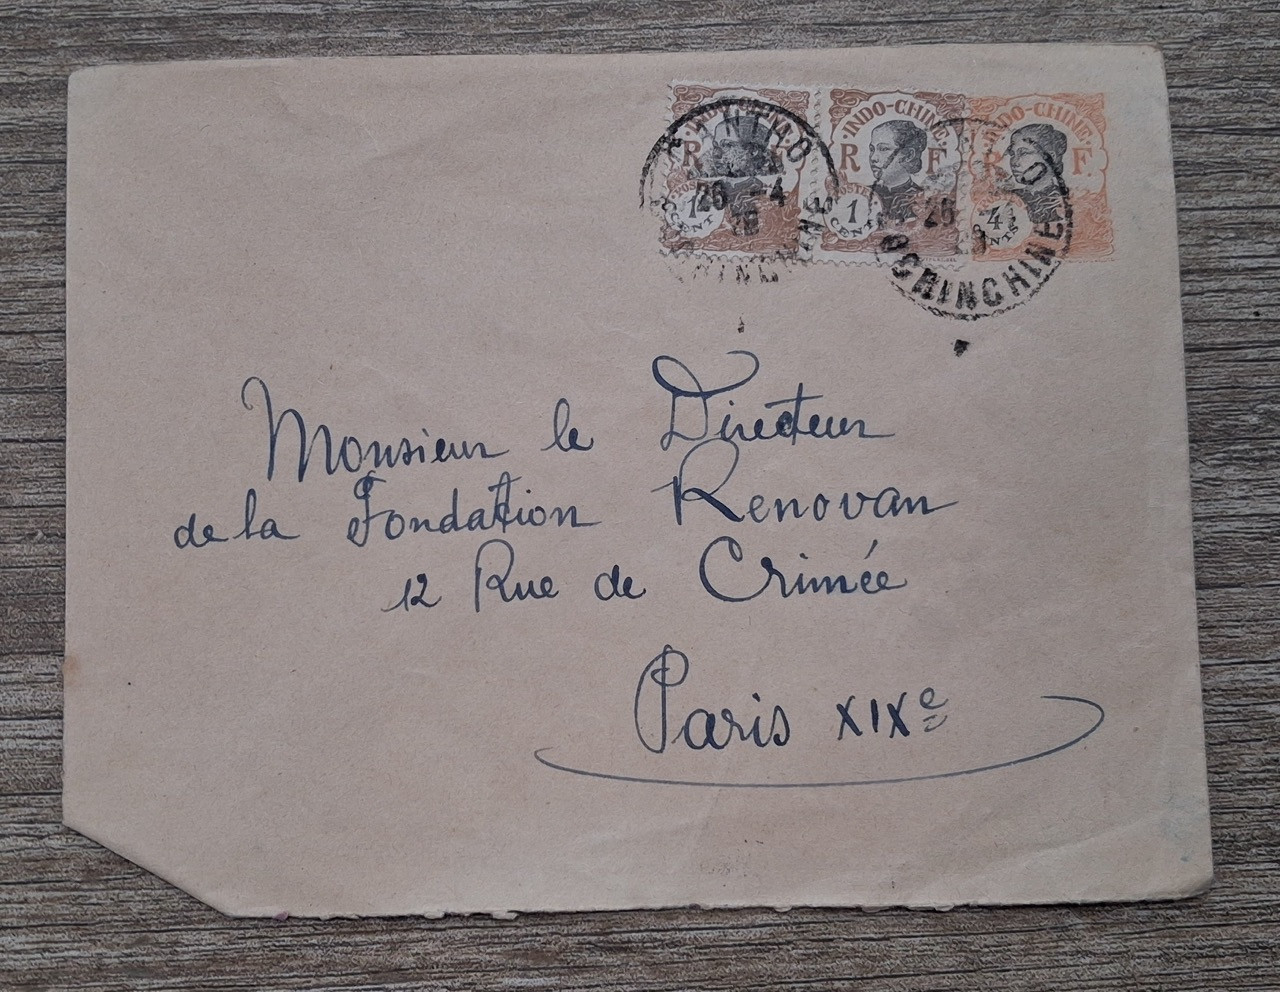 INDO-CHINE
R F
POSTES
1
CENT
INDO-CHINE
R F
POSTES
1
CENT
INDO-CHINE
R F
4
CENTS
26 -4
COCHINCHINE
26
COCHINCHINE
Monsieur le Directeur
de la Fondation Renovan
12 Rue de Crimée
Paris XIXe